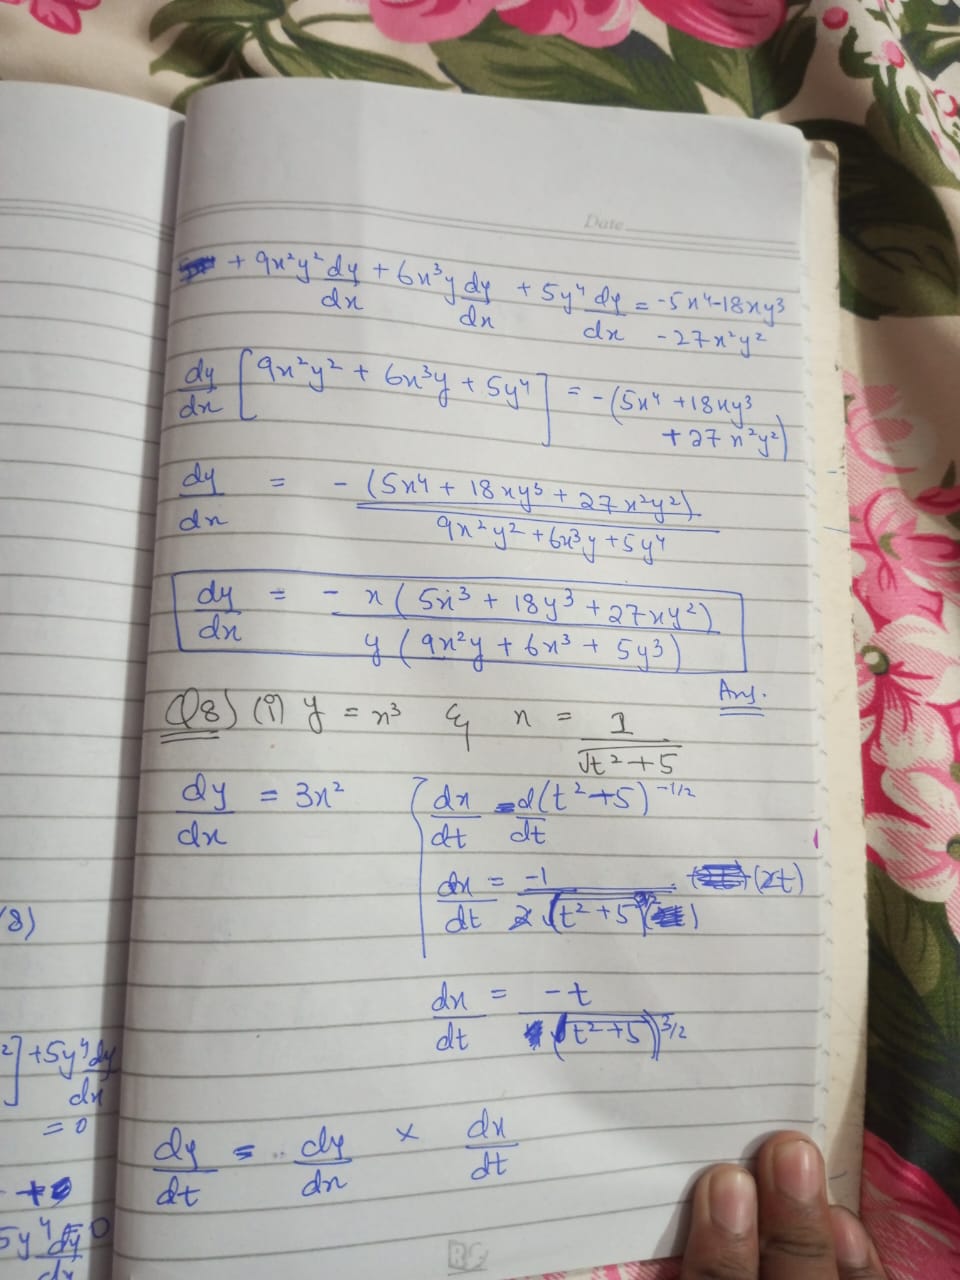 Date
+ 9x²y² dy/dx + 6x³y dy/dx + 5y⁴ dy/dx = -5x⁴-18xy³
-27x²y²
dy/dx [9x²y² + 6x³y + 5y⁴] = -(5x⁴ +18xy³
+27x²y²)
dy/dx = - (5x⁴ + 18xy³ + 27x²y²) / 9x²y² + 6x³y + 5y⁴
dy/dx = - x(5x³ + 18y³ + 27xy²) / y(9x²y + 6x³ + 5y³)
Ans.
Q8) (i) y = x³ & x = 1/√t²+5
dy/dx = 3x²
dx/dt = d/dt (t²+5)^-1/2
dx/dt = -1 / 2(t²+5)^3/2 (2t)
dx/dt = -t / (t²+5)^3/2
dy/dt = dy/dx × dx/dt
/8)
²]+5y⁴dy/dx
= 0
5y⁴dy/dx